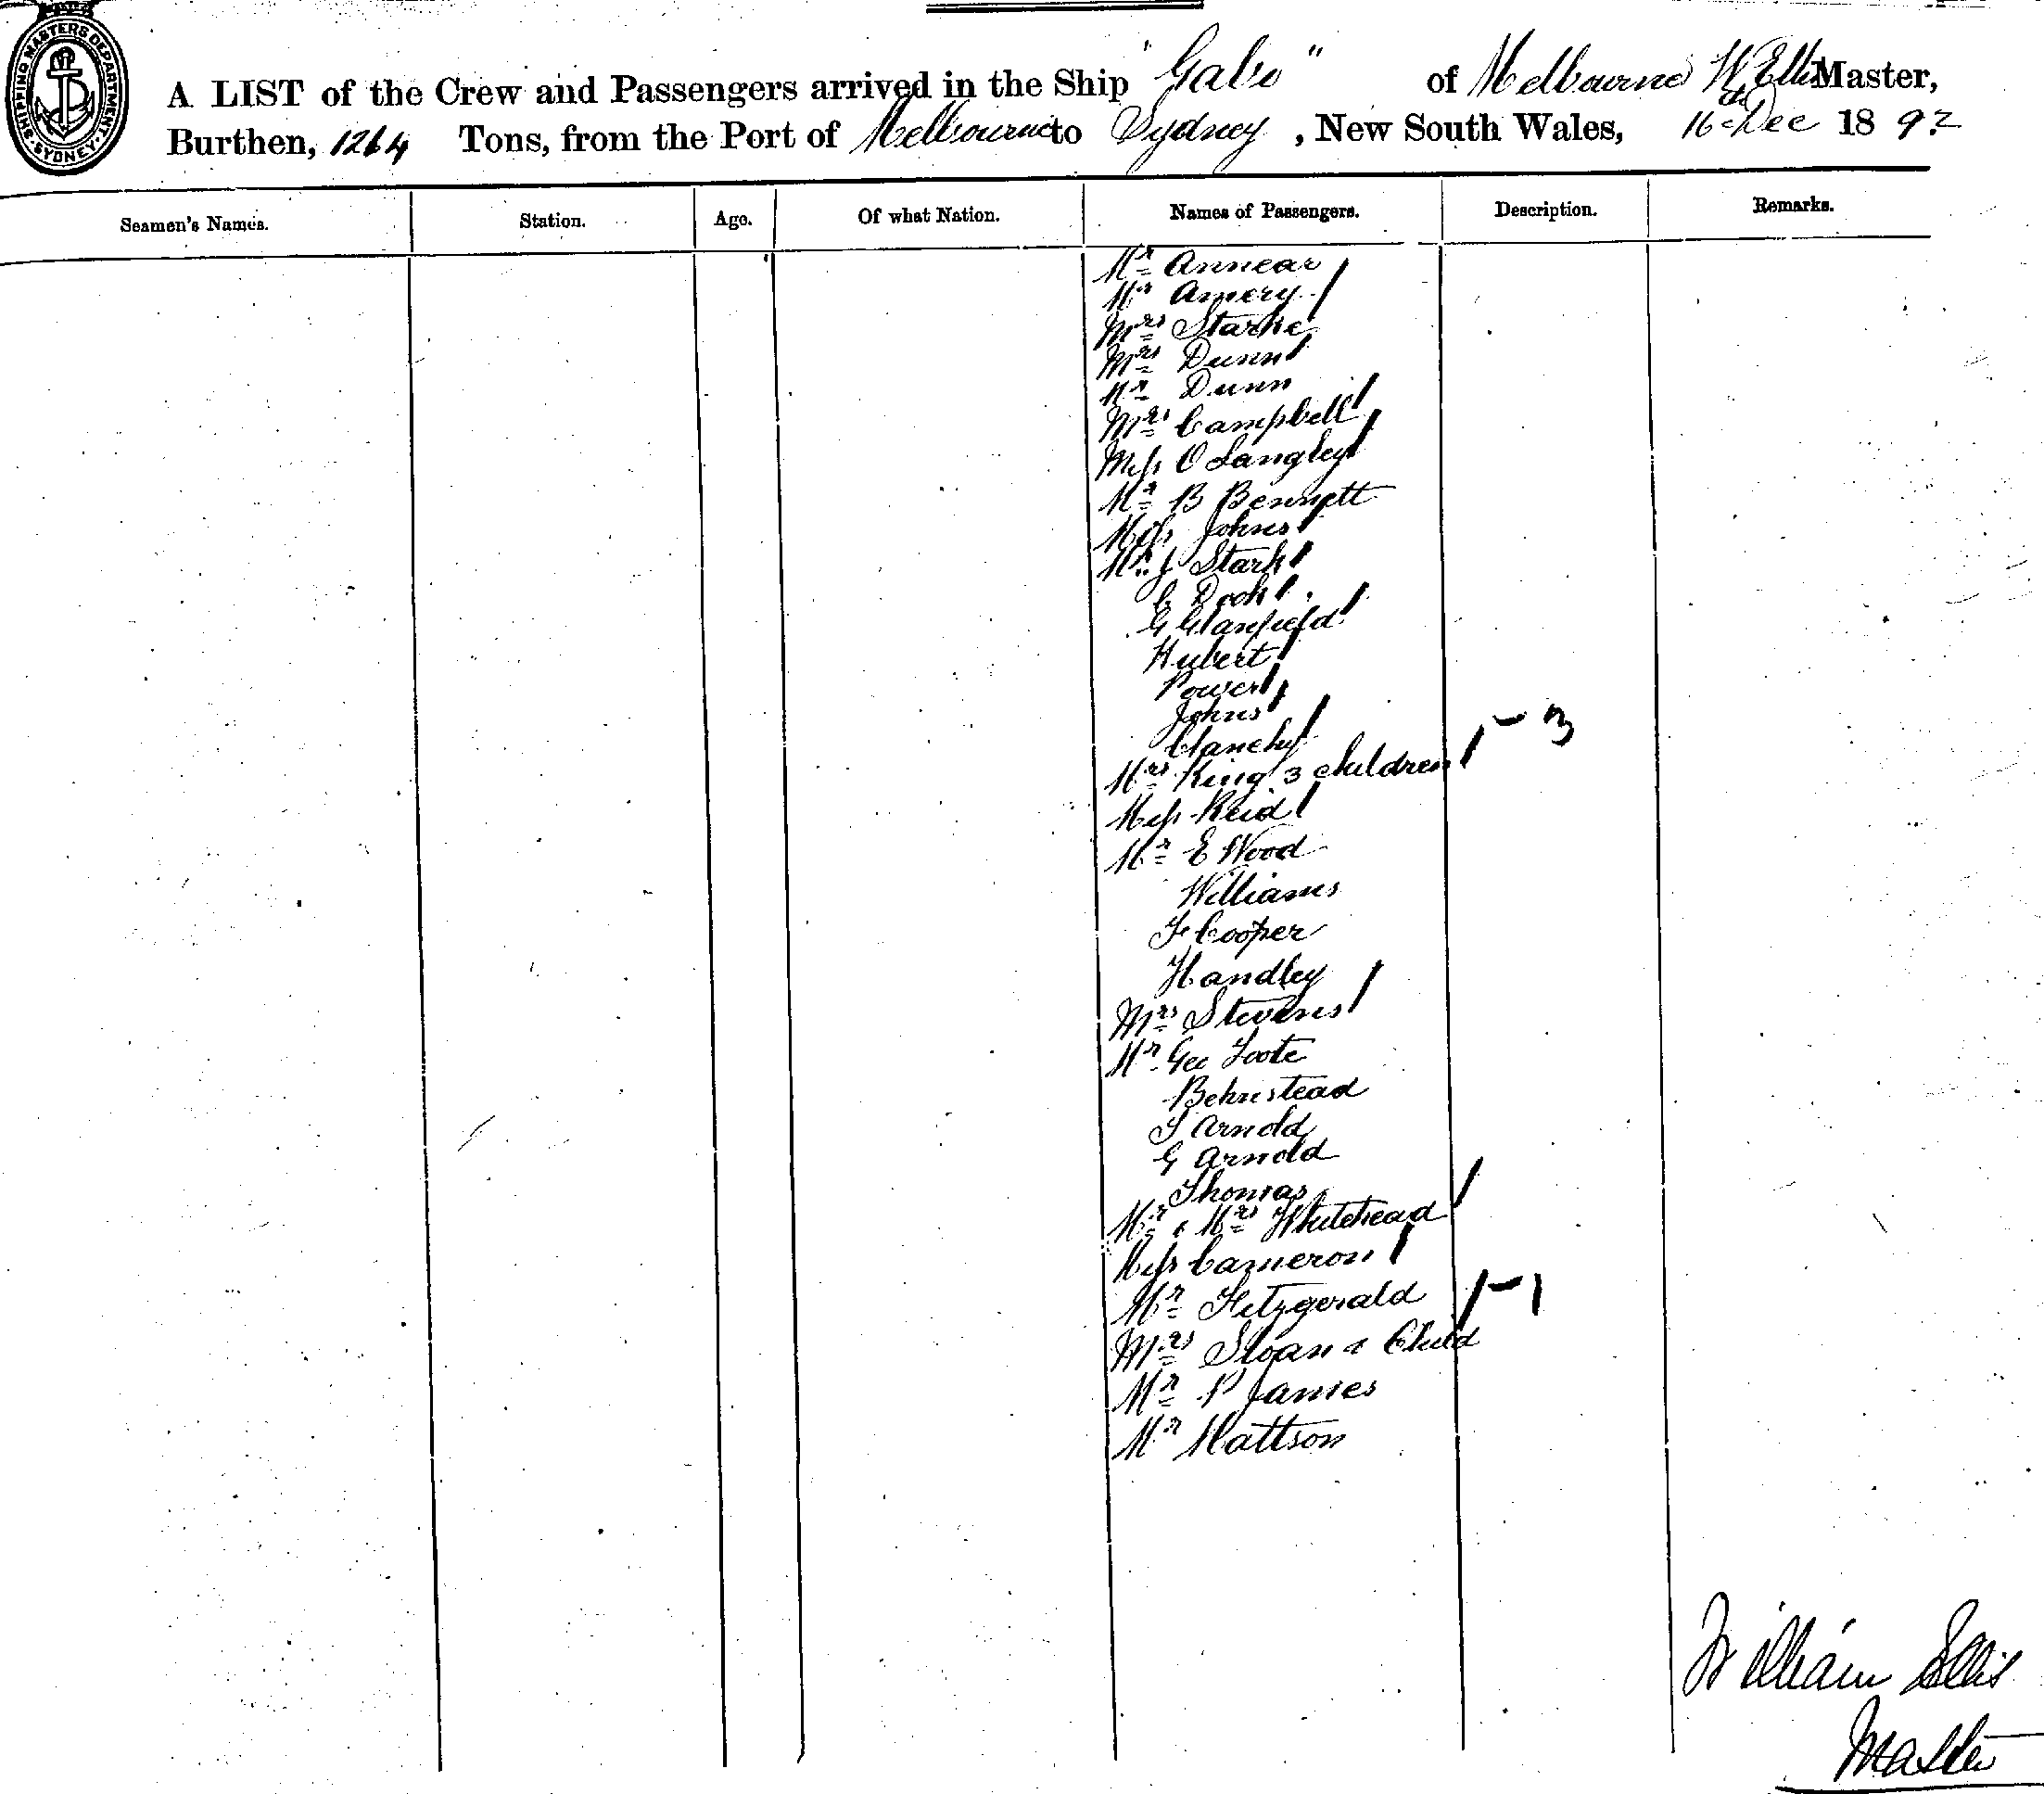 SHIPPING MASTERS DEPARTMENT SYDNEY
A LIST of the Crew and Passengers arrived in the Ship "Gabo" of Melbourne W Ellis Master,
Burthen, 1264 Tons, from the Port of Melbourne to Sydney, New South Wales, 16th Dec 1892
Seamen's Names. Station. Age. Of what Nation. Names of Passengers. Description. Remarks.
Mr Annear
Mr Amery
Mrs Starke
Mrs Dunn
Mr Dunn
Mrs Campbell
Miss O Langley
Mr B Bennett
Miss Johns
Mr J Stark
G Glanfield
Hubert
Power
Johns
Clanchy
Mrs King 3 children - 3
Miss Reid
Mr E Wood
Williams
F Cooper
Handley
Mrs Stevens
Mr Geo Foote
Behnstead
T Arnold
G Arnold
Thomas
Mr & Mrs Whitehead
Miss Cameron
Mr Fitzgerald - 1
Mrs Sloan & Child
Mr P James
Mr Mattson
William Ellis
Master